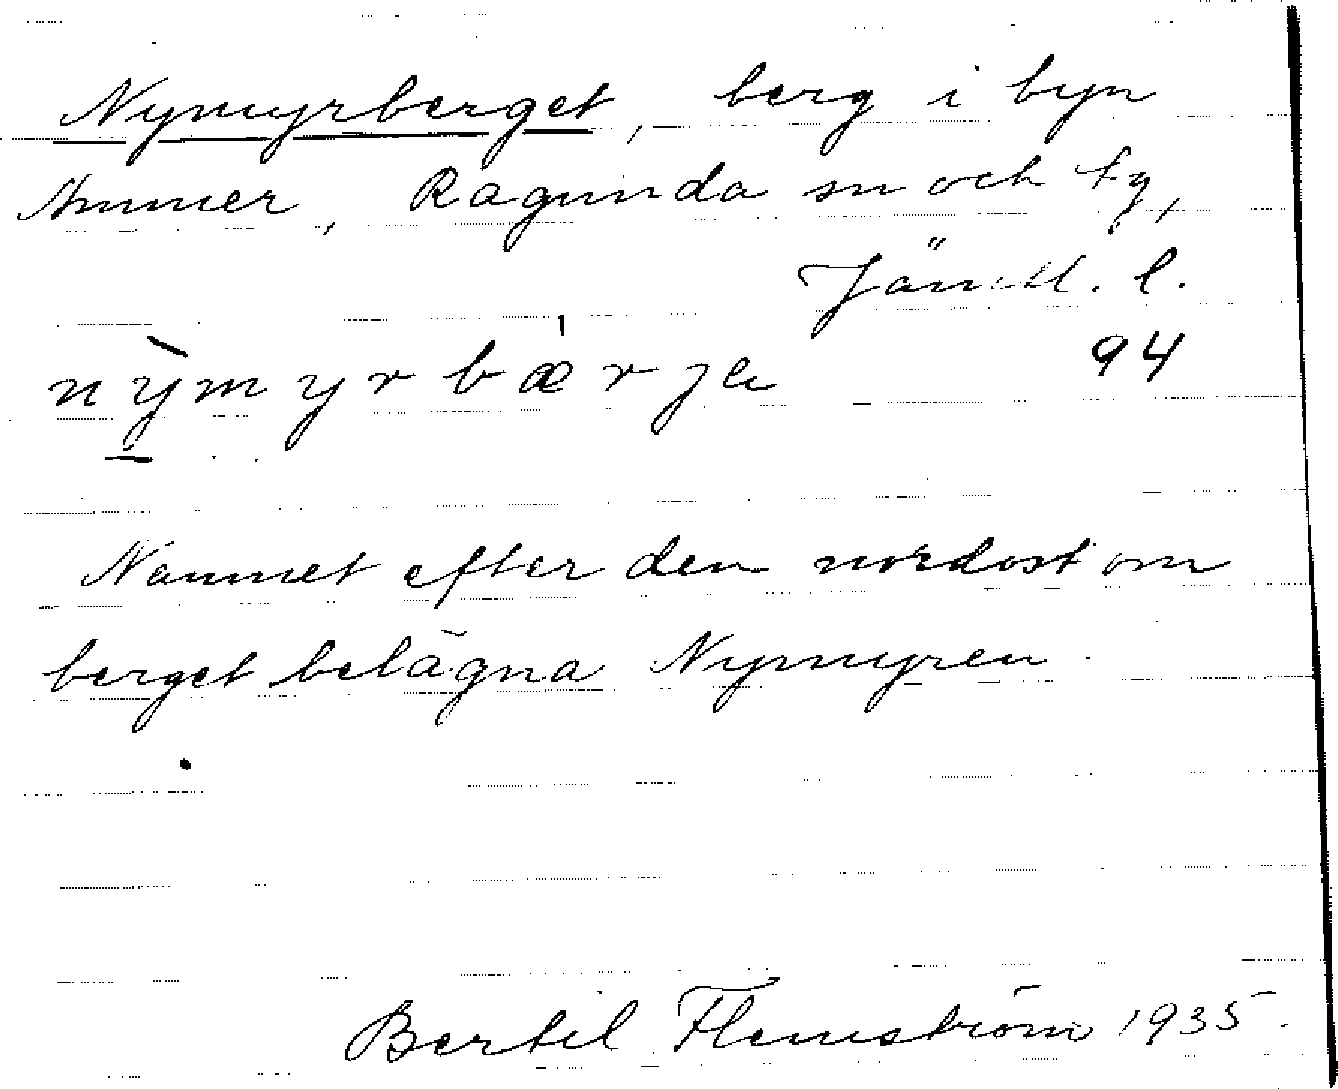 Nymyrberget, berg i byn
Ammer, Ragunda sn och tg,
Jämtl. l.
nỳmyrbærjɐ 94
Namnet efter den nordost om
berget belägna Nymyren.
Bertil Flemström 1935.